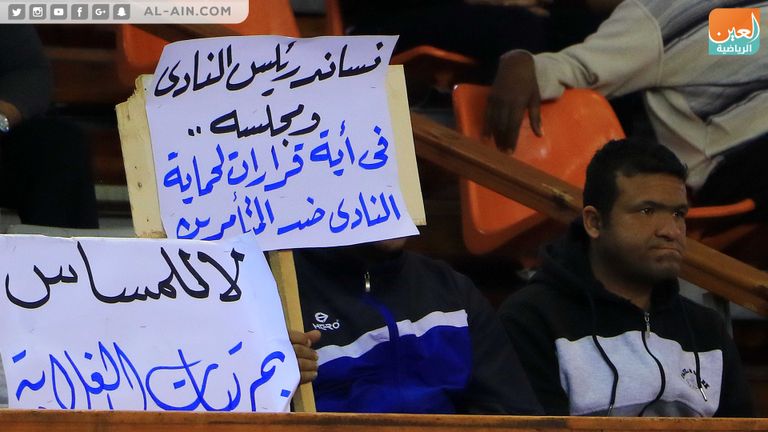 AL-AIN.COM
العين
الرياضية
نساند رئيس النادى
ومجلسه ..
فى أية قرارات لحماية
النادى ضد المتأمرين
لا للمساس
بمرتبات الغلابة
HERO